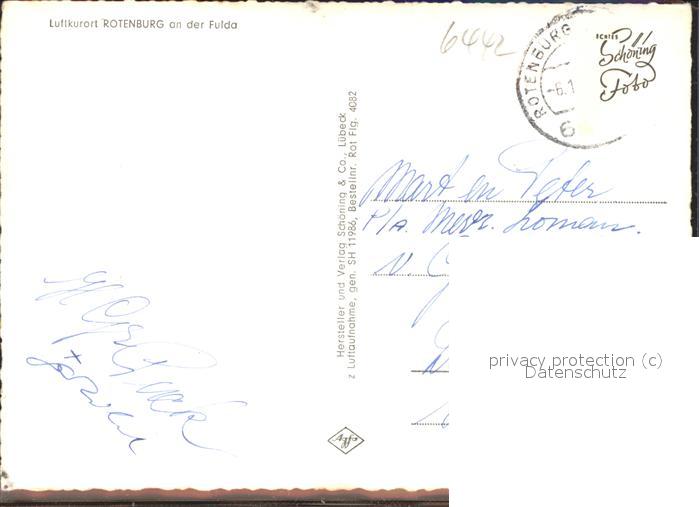 Luftkurort ROTENBURG an der Fulda
6442
ROTENBURG
-6.1
ECHTES
Schöning
Foto
Hersteller und Verlag Schöning & Co., Lübeck
z Luftaufnahme, gen. SH 11986, Bestellnr. Rot Flg. 4082
Mart en Peter
P/A. Mevr. Loman.
Agfa
privacy protection (c)
Datenschutz